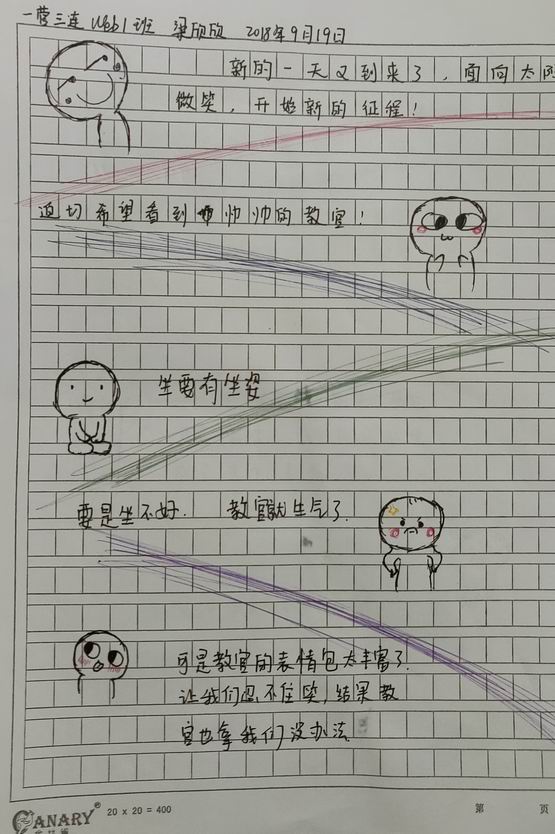 一营三连 Web1班 梁欣欣 2018年9月19日
新的一天又到来了，面向太阳
微笑，开始新的征程！
迫切希望看到帅帅的教官！
坐要有坐姿
要是坐不好. 教官就生气了.
可是教官的表情包太丰富了.
让我们忍不住笑，结果教
官也拿我们没办法.
CANARY® 20 x 20 = 400 第 页